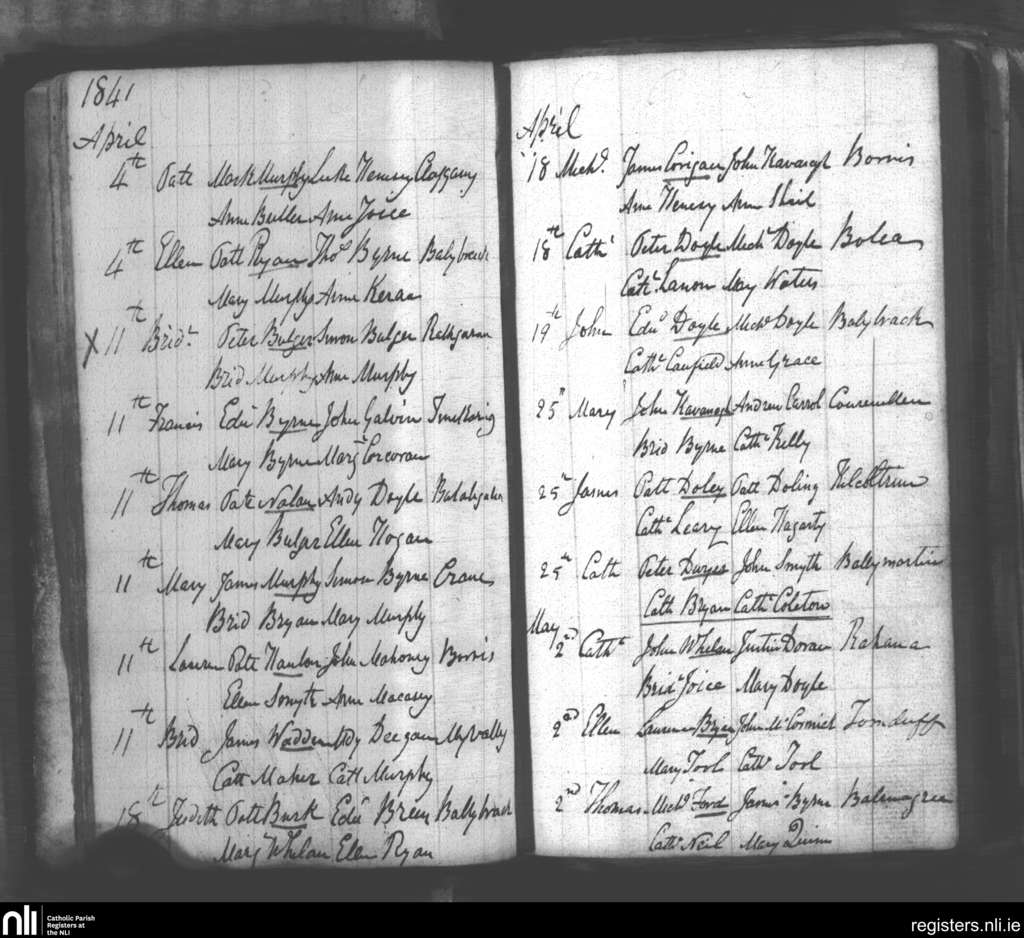 1841
April
4th Patt Mark Murphy Luke Henesy
Anne Butler Anne Joice
4th Ellen Patt Ryan Thos Byrne
Mary Murphy Anne
X 11th Bridt Peter Bulger Simon Bulger Rathgeran
Brid Murphy Anne Murphy
11th Francis Edwd Byrne John Galvin
Mary Byrne Margt Corcoran
11th Thomas Patt Nolan Andy Doyle
Mary Bulger Ellen Hogan
11th Mary James Murphy Simon Byrne Crane
Brid Bryan Mary Murphy
11th Lauren Patt Hanlon John Mahony Borris
Ellen Smyth Anne
11th Brid James Wadden Andy Deegan
Cath Maher Cath Murphy
18th Judith Patt Burk Edwd Breen Ballybrack
Mary Whelan Ellen Ryan
April
18 Michl. James Corigan John Kavanagh Borris
Anne Henesy Ann
18th Cath Peter Doyle Michl Doyle
Cath Lanon May Waters
19th John Edwd Doyle Michl Doyle Balybrack
Cathe Caufield Ann Grace
25th Mary John Kavanagh Andrew Carrol
Brid Byrne Cathe Kelly
25th James Patt Doley Patt Doling Kilcoltrim
Cathe Leary Ellen Hagarty
25th Cath Peter Dwyer John Smyth Ballymartin
Cath Bryan Cathe Coleton
May
2nd Cathe John Whelan Justin Doran Rahana
Bridt Joice Mary Doyle
2nd Ellen Laurence Bryan John McCormick Tomduff
Mary Tool Cathe Tool
2nd Thomas Michl Ford James Byrne
Cathe Neil Mary Quinn
nli Catholic Parish Registers at the NLI
registers.nli.ie